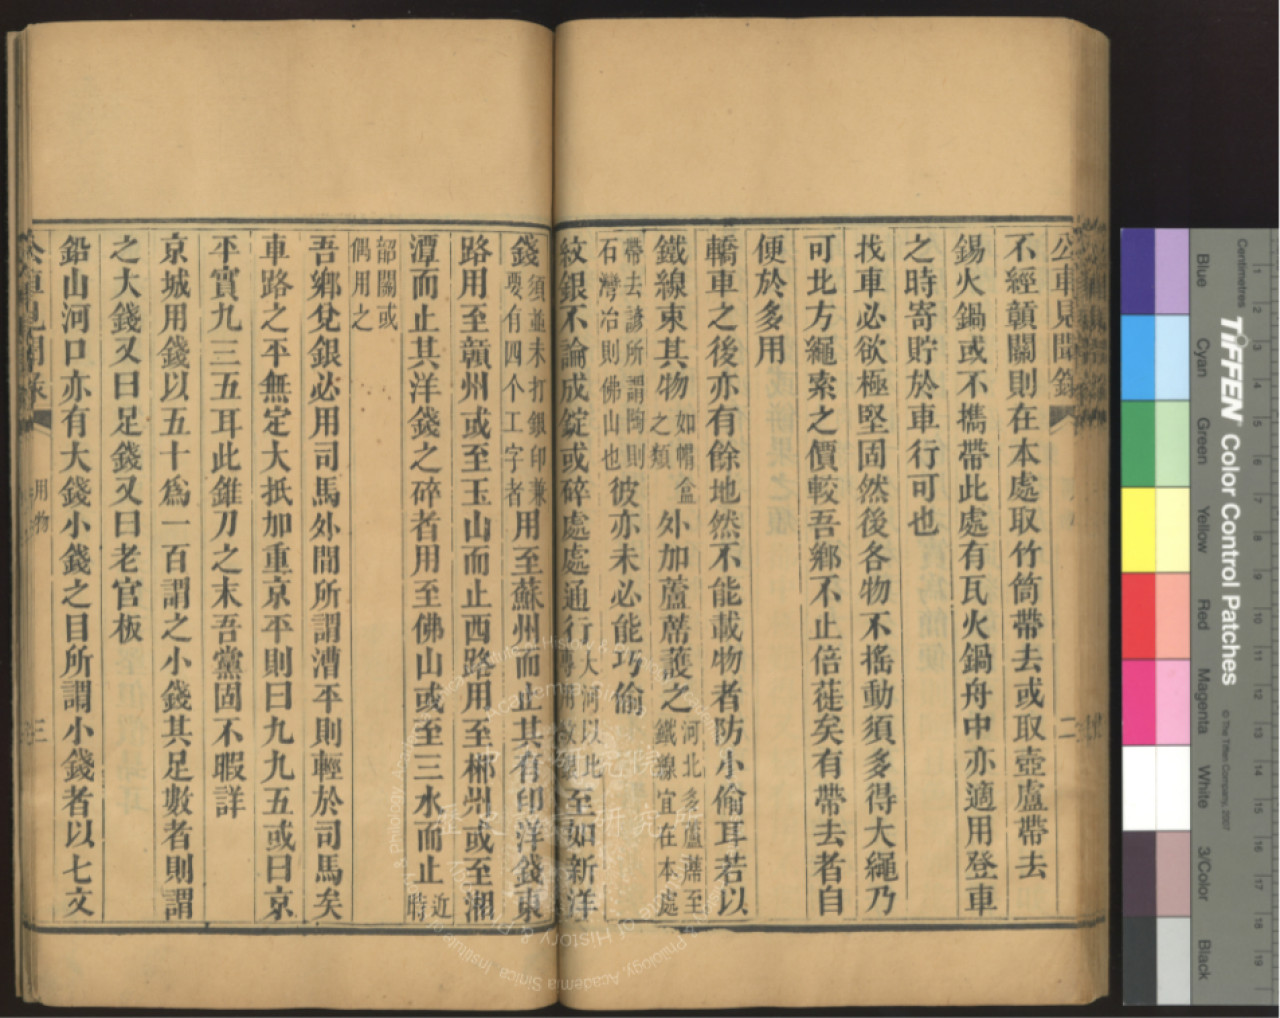 公車見聞錄
二
不經贛關則在本處取竹筒帶去或取壺盧帶去
錫火鍋或不攜帶此處有瓦火鍋舟中亦適用登車
之時寄貯於車行可也
找車必欲極堅固然後各物不搖動須多得大繩乃
可北方繩索之價較吾鄉不止倍蓰矣有帶去者自
便於多用
轎車之後亦有餘地然不能載物者防小偷耳若以
鐵線束其物如帽盒之類外加蘆蓆護之河北多蘆蓆至鐵線宜在本處
帶去諺所謂陶則石灣冶則佛山也彼亦未必能巧偷
紋銀不論成錠或碎處處通行大河以北專用紋銀至如新洋
錢須並未打銀印兼要有四个工字者用至蘇州而止其有印洋錢東
路用至贛州或至玉山而止西路用至郴州或至湘
潭而止其洋錢之碎者用至佛山或至三水而止近時
韶關或偶用之
吾鄉兌銀必用司馬外間所謂漕平則輕於司馬矣
車路之平無定大抵加重京平則曰九九五或曰京
平實九三五耳此錐刀之末吾黨固不暇詳
京城用錢以五十爲一百謂之小錢其足數者則謂
之大錢又曰足錢又曰老官板
鉛山河口亦有大錢小錢之目所謂小錢者以七文
公車見聞錄
用物
三
Tiffen Color Control Patches
© The Tiffen Company, 2007
Centimetres
Blue
Cyan
Green
Yellow
Red
Magenta
White
3/Color
Black